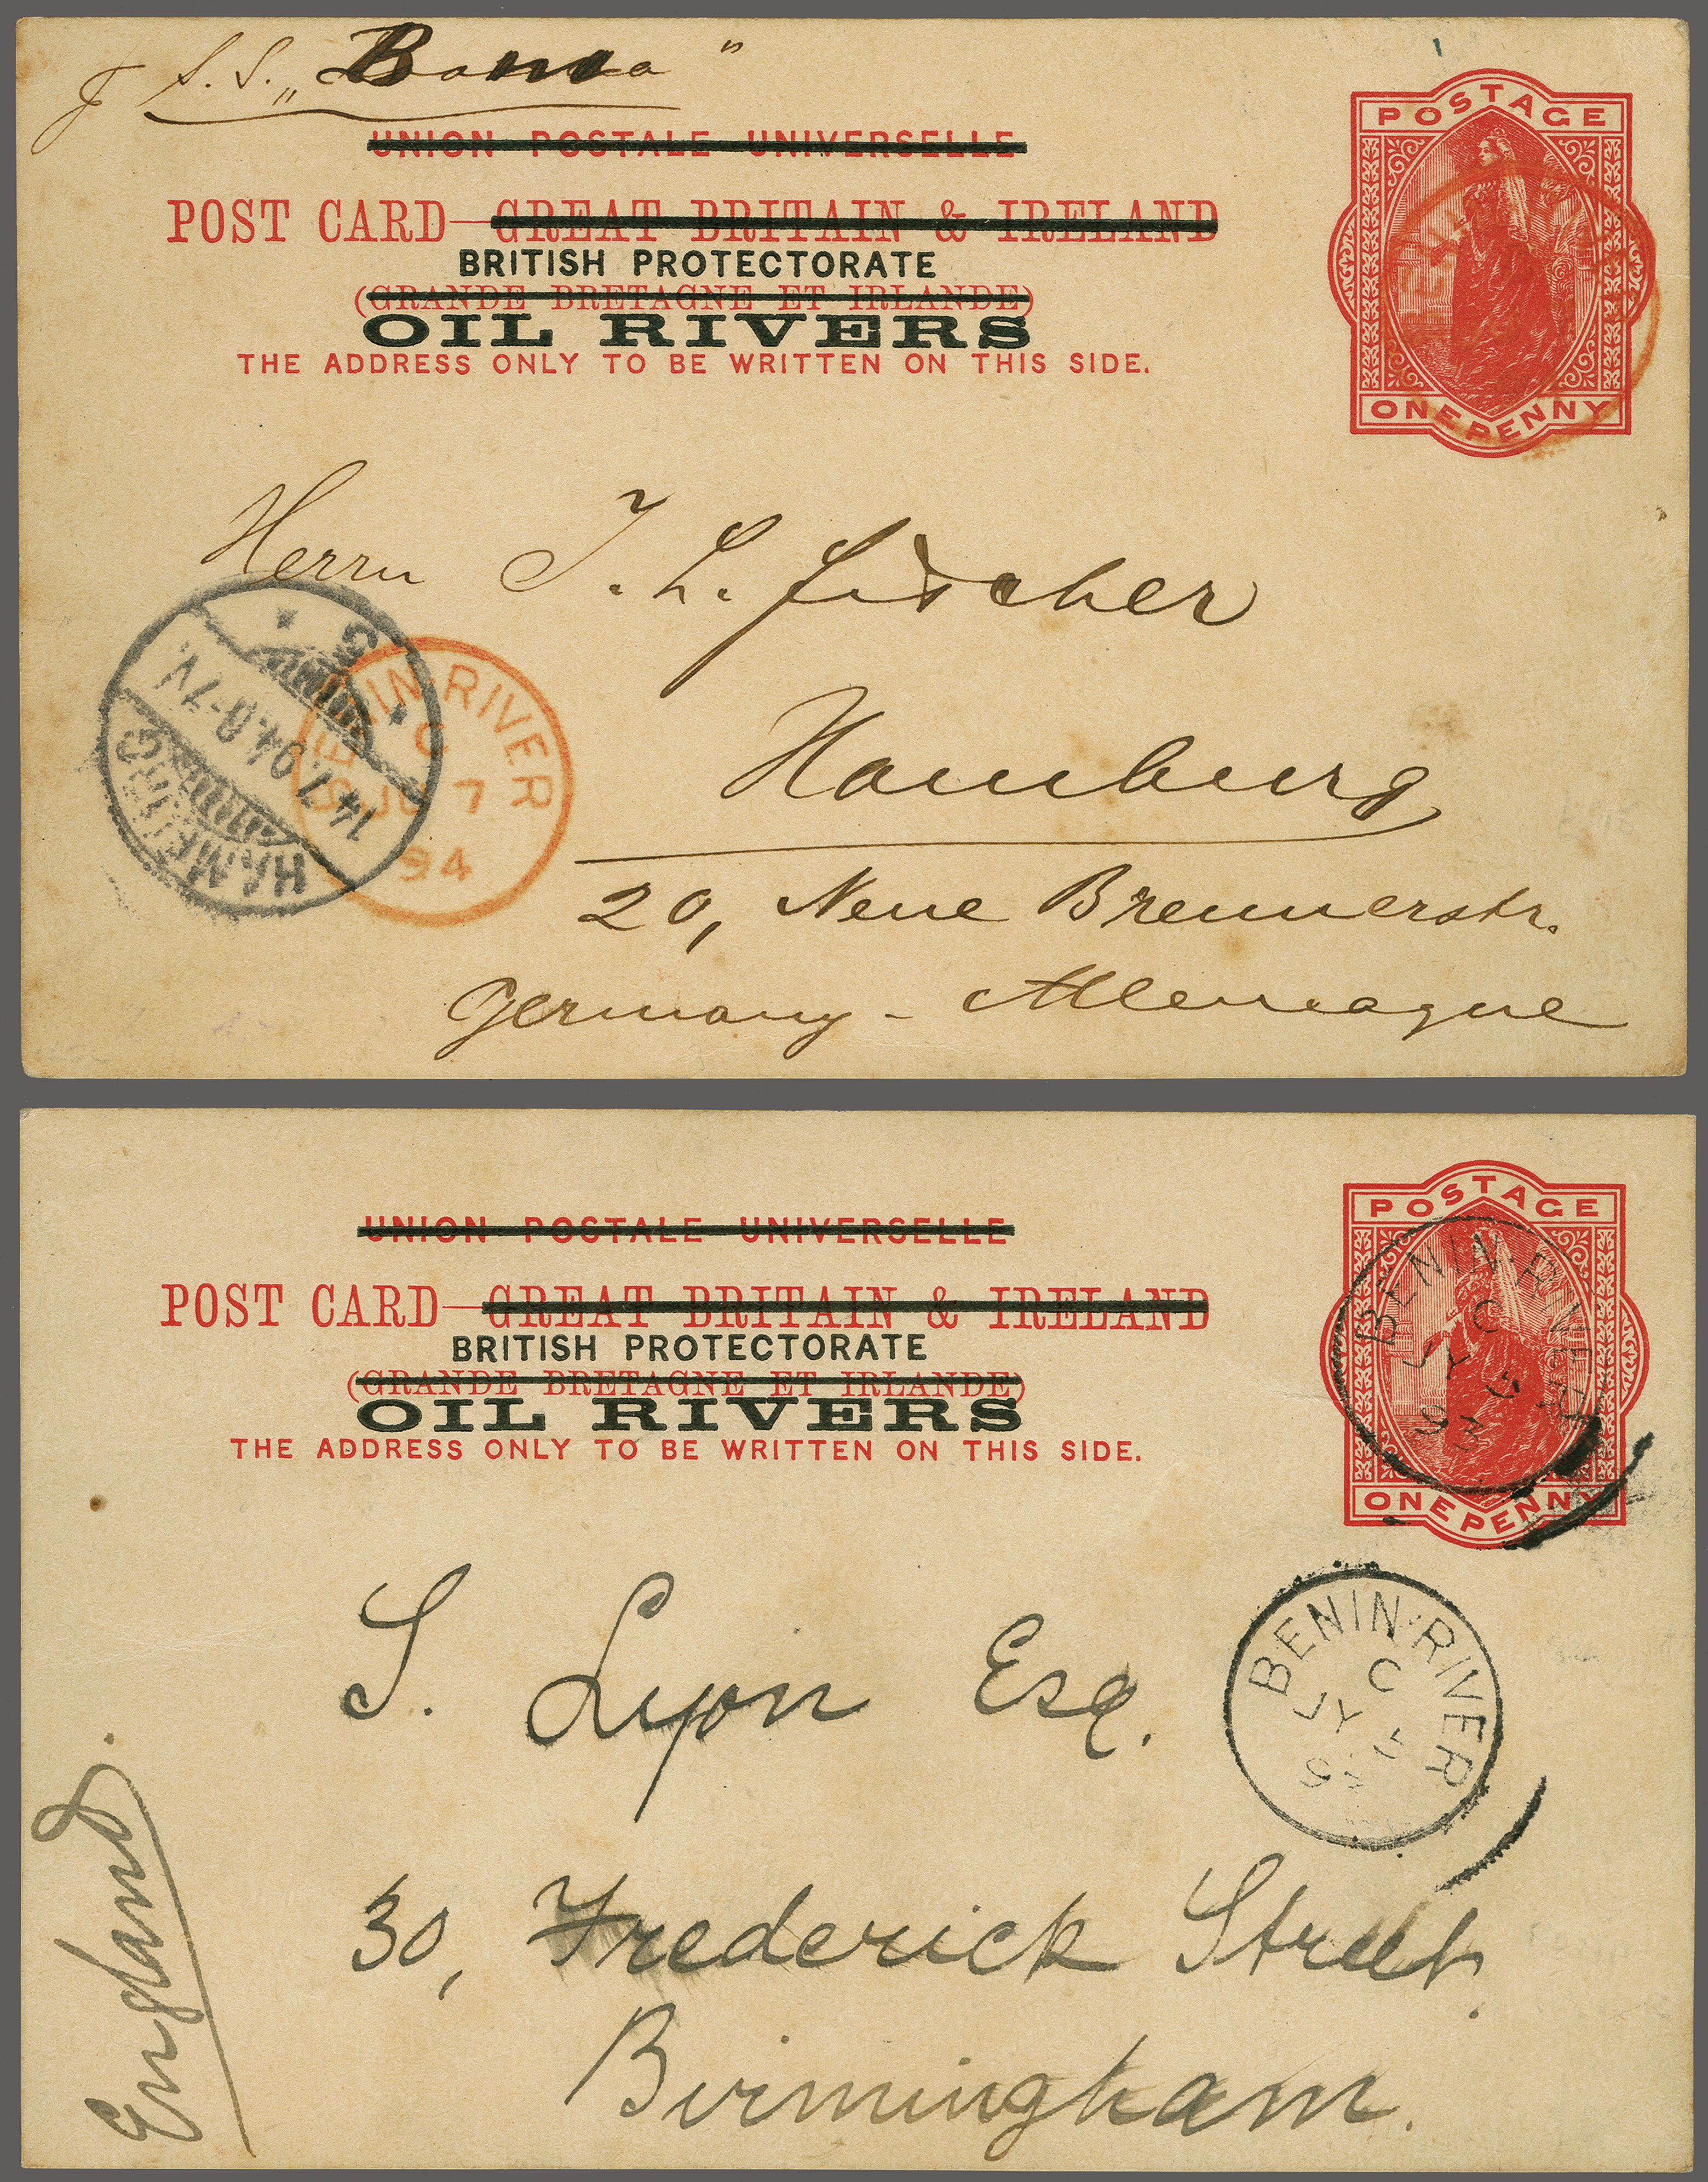 p S.S. „Bonna"
UNION POSTALE UNIVERSELLE
POST CARD—GREAT BRITAIN & IRELAND
BRITISH PROTECTORATE
(GRANDE BRETAGNE ET IRLANDE)
OIL RIVERS
THE ADDRESS ONLY TO BE WRITTEN ON THIS SIDE.
POSTAGE
ONE PENNY
Herrn J. L. Fischer
Hamburg
20, Neue Brennerstr.
Germany - Allemagne
HAMBURG
14.7.94.8-7V.
5
BENIN·RIVER
C
JU 7
94
UNION POSTALE UNIVERSELLE
POST CARD—GREAT BRITAIN & IRELAND
BRITISH PROTECTORATE
(GRANDE BRETAGNE ET IRLANDE)
OIL RIVERS
THE ADDRESS ONLY TO BE WRITTEN ON THIS SIDE.
POSTAGE
ONE PENNY
BENIN·RIVER
C
JY
93
S. Lyon Esq.
BENIN·RIVER
C
JY
30, Frederick Street.
Birmingham.
England.